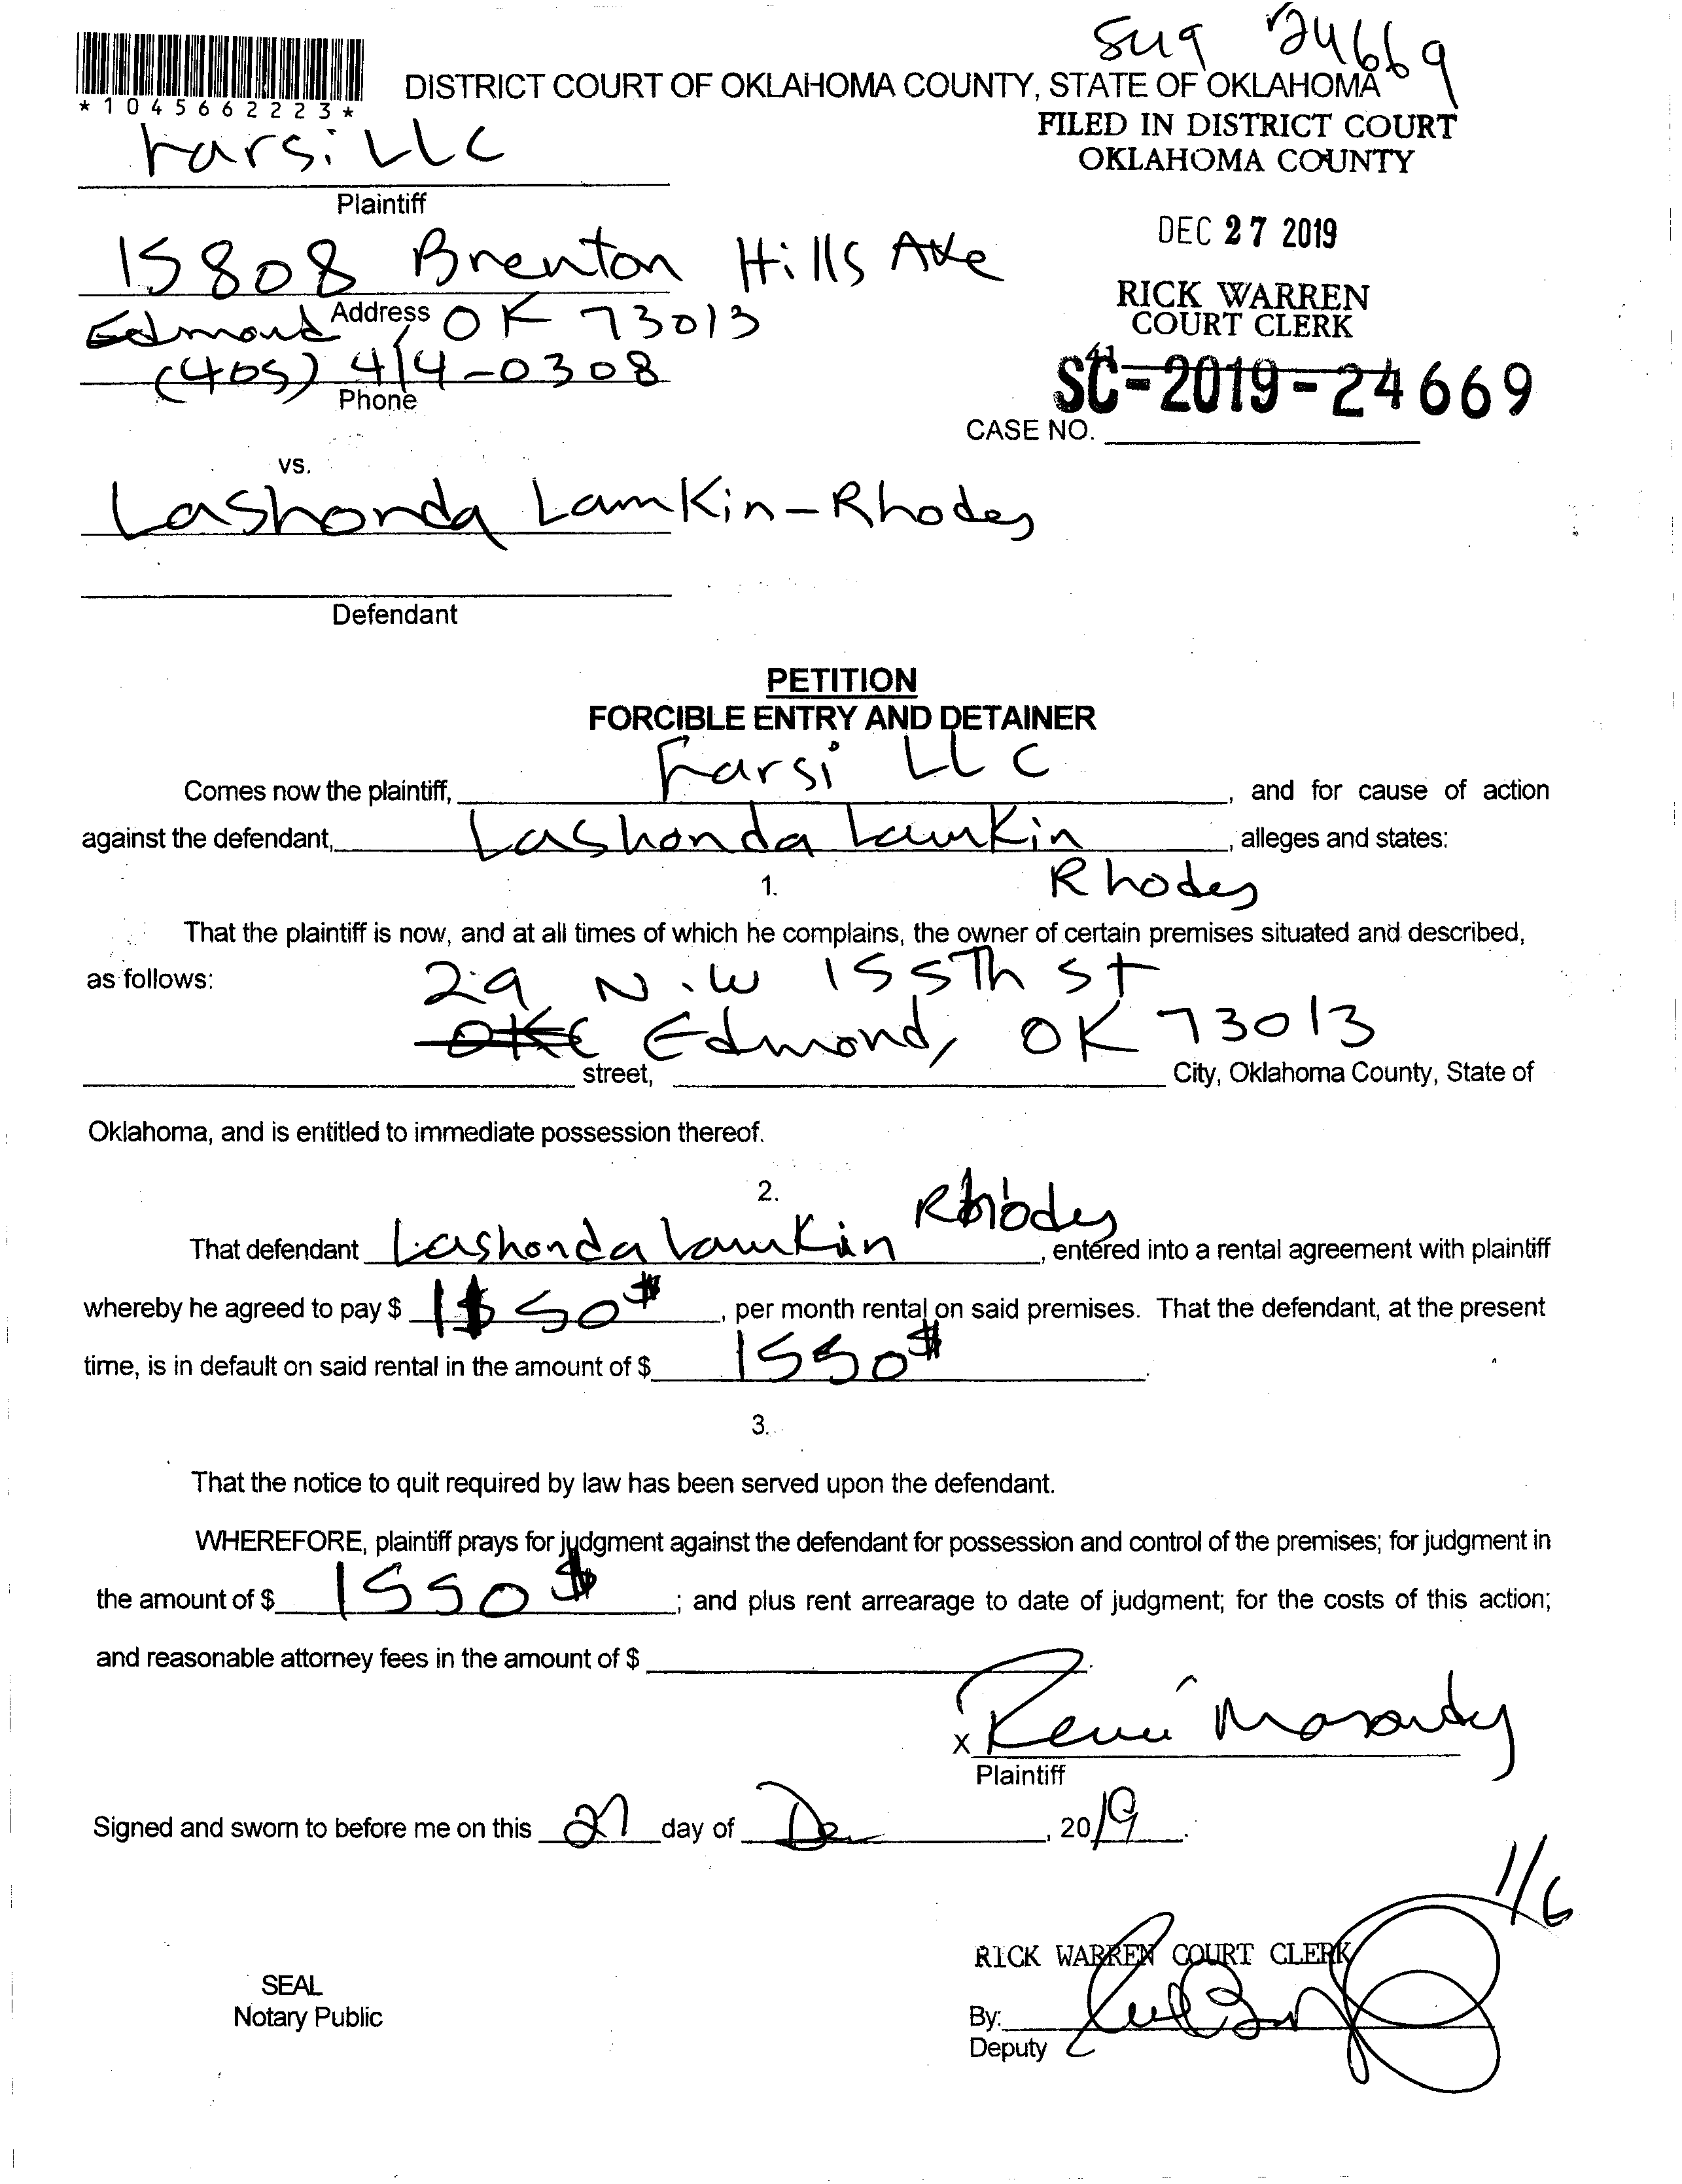 Sug 24669
*1045662223*
DISTRICT COURT OF OKLAHOMA COUNTY, STATE OF OKLAHOMA
FILED IN DISTRICT COURT
OKLAHOMA COUNTY
Farsi LLC
Plaintiff
DEC 27 2019
15808 Brenton Hills Ave
Address
RICK WARREN
COURT CLERK
Edmond, OK 73013
(405) 414-0308
Phone
41
SC-2019-24669
CASE NO.
vs.
Lashonda LamKin-Rhodes
Defendant
PETITION
FORCIBLE ENTRY AND DETAINER
Comes now the plaintiff, Farsi LLC, and for cause of action
against the defendant, Lashonda LamKin, alleges and states:
Rhodes
1.
That the plaintiff is now, and at all times of which he complains, the owner of certain premises situated and described,
as follows: 29 N.W 155Th St
OKC Edmond, OK 73013
street, City, Oklahoma County, State of
Oklahoma, and is entitled to immediate possession thereof.
2.
Rhodes
That defendant Lashonda LamKin, entered into a rental agreement with plaintiff
whereby he agreed to pay $ 1550$, per month rental on said premises. That the defendant, at the present
time, is in default on said rental in the amount of $ 1550$.
3.
That the notice to quit required by law has been served upon the defendant.
WHEREFORE, plaintiff prays for judgment against the defendant for possession and control of the premises; for judgment in
the amount of $ 1550$; and plus rent arrearage to date of judgment; for the costs of this action;
and reasonable attorney fees in the amount of $
x
Plaintiff
Signed and sworn to before me on this 27 day of Dec, 2019.
1/6
RICK WARREN COURT CLERK
SEAL
Notary Public
By:
Deputy